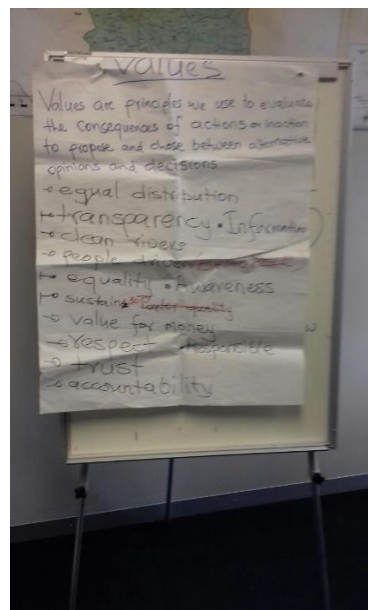 Values
Values are principles we use to evaluate
the consequences of actions or inaction
to propose and chose between alternative
opinions and decisions
equal distribution
transparency • Information
clean rivers
people driven
equality • Awareness
sustain
value for money
respect • Responsible
trust
accountability